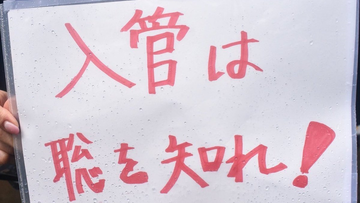 入管は
聡を知れ!